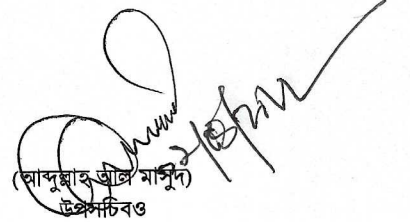 (আব্দুল্লাহ আল মাসুদ)
উপসচিবও